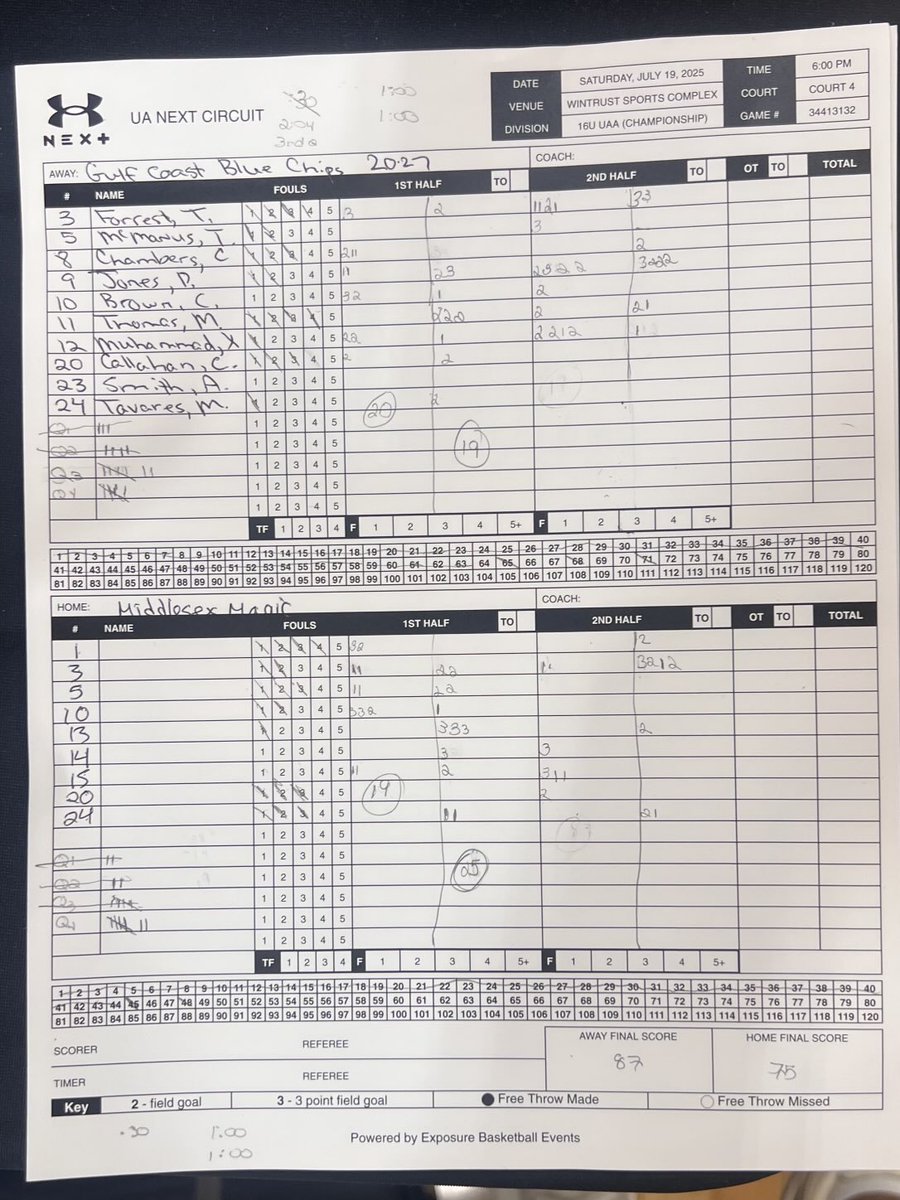 NEXT
UA NEXT CIRCUIT
30
2:04
3rd Q
1:00
1:00
DATE SATURDAY, JULY 19, 2025 TIME 6:00 PM
VENUE WINTRUST SPORTS COMPLEX COURT COURT 4
DIVISION 16U UAA (CHAMPIONSHIP) GAME # 34413132
AWAY: Gulf Coast Blue Chips 2027 COACH:
# NAME FOULS 1ST HALF TO 2ND HALF TO OT TO TOTAL
3 Forrest, T. 1 2 3 4 5 3 2 1121 33
5 McManus, T. 1 2 3 4 5 3
8 Chambers, C 1 2 3 4 5 211 2
9 Jones, P. 1 2 3 4 5 11 23 2322
10 Brown, C. 1 2 3 4 5 32 1 2
11 Thomas, M. 1 2 3 4 5 2 21
12 Muhammad, X 1 2 3 4 5 22 1 2212 1
20 Callahan, C. 1 2 3 4 5 2 2
23 Smith, A. 1 2 3 4 5
24 Tavares, M. 1 2 3 4 5 20 2
Q1 III 1 2 3 4 5
Q2 IIII 1 2 3 4 5 19
Q3 IIII II 1 2 3 4 5
Q4 1 2 3 4 5
1 2 3 4 5
TF 1 2 3 4 F 1 2 3 4 5+ F 1 2 3 4 5+
1 2 3 4 5 6 7 8 9 10 11 12 13 14 15 16 17 18 19 20 21 22 23 24 25 26 27 28 29 30 31 32 33 34 35 36 37 38 39 40
41 42 43 44 45 46 47 48 49 50 51 52 53 54 55 56 57 58 59 60 61 62 63 64 65 66 67 68 69 70 71 72 73 74 75 76 77 78 79 80
81 82 83 84 85 86 87 88 89 90 91 92 93 94 95 96 97 98 99 100 101 102 103 104 105 106 107 108 109 110 111 112 113 114 115 116 117 118 119 120
HOME: Middlesex Magic COACH:
# NAME FOULS 1ST HALF TO 2ND HALF TO OT TO TOTAL
1 1 2 3 4 5 32 2
3 1 2 3 4 5 11 22 3212
5 1 2 3 4 5 11 22
10 1 2 3 4 5 332 1
13 1 2 3 4 5 333 2
14 1 2 3 4 5 3 3
15 1 2 3 4 5 11 2 311
20 1 2 3 4 5 19 2
24 1 2 3 4 5 11 21
1 2 3 4 5
Q1 II 1 2 3 4 5
Q2 II 1 2 3 4 5 25
Q3 1 2 3 4 5
Q4 IIII II 1 2 3 4 5
1 2 3 4 5
TF 1 2 3 4 F 1 2 3 4 5+ F 1 2 3 4 5+
1 2 3 4 5 6 7 8 9 10 11 12 13 14 15 16 17 18 19 20 21 22 23 24 25 26 27 28 29 30 31 32 33 34 35 36 37 38 39 40
41 42 43 44 45 46 47 48 49 50 51 52 53 54 55 56 57 58 59 60 61 62 63 64 65 66 67 68 69 70 71 72 73 74 75 76 77 78 79 80
81 82 83 84 85 86 87 88 89 90 91 92 93 94 95 96 97 98 99 100 101 102 103 104 105 106 107 108 109 110 111 112 113 114 115 116 117 118 119 120
SCORER REFEREE AWAY FINAL SCORE HOME FINAL SCORE
87 75
TIMER REFEREE
Key 2 - field goal 3 - 3 point field goal Free Throw Made Free Throw Missed
.30 1:00
1:00
Powered by Exposure Basketball Events